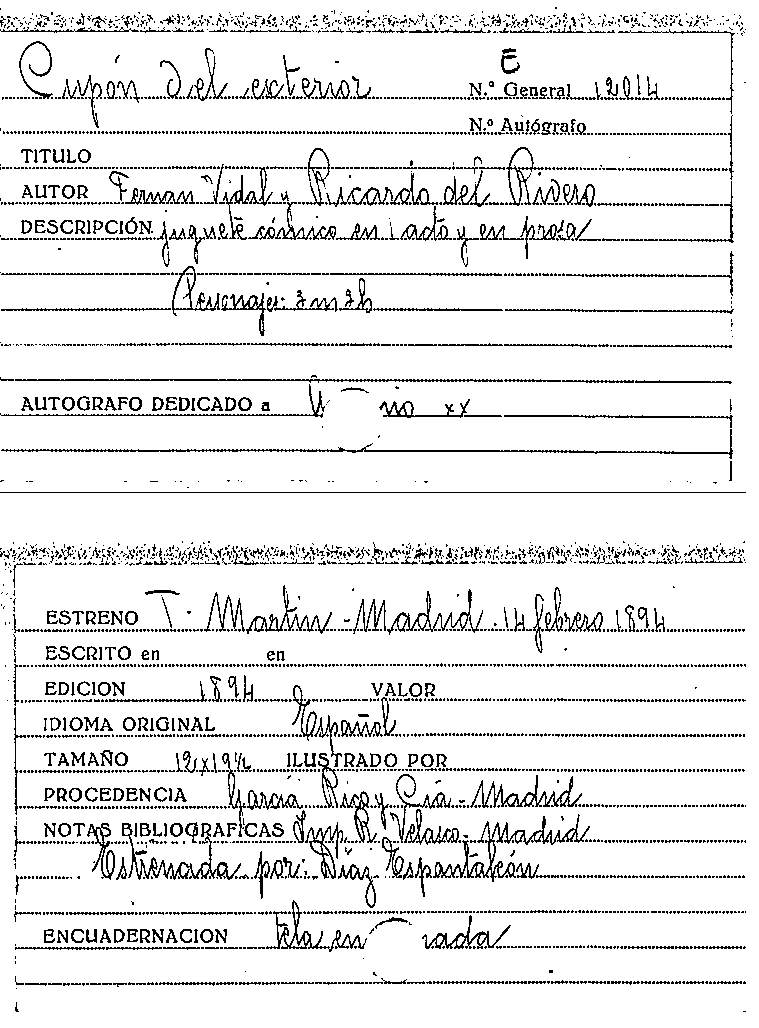 E
Cupón del exterior N.º General 12014
N.º Autógrafo
TITULO
AUTOR Fernan Vidal y Ricardo del Rivero
DESCRIPCIÓN juguete cómico en 1 acto y en prosa
Personajes: 3 m 3 h
AUTOGRAFO DEDICADO a xx
ESTRENO T. Martin - Madrid. 14 febrero 1894
ESCRITO en en
EDICION 1894 VALOR
IDIOMA ORIGINAL Español
TAMAÑO ILUSTRADO POR
PROCEDENCIA García Rico y Cía - Madrid
NOTAS BIBLIOGRAFICAS Imp. R. Velasco - Madrid
Estrenada por: Díaz Espantaleón
ENCUADERNACION tela en